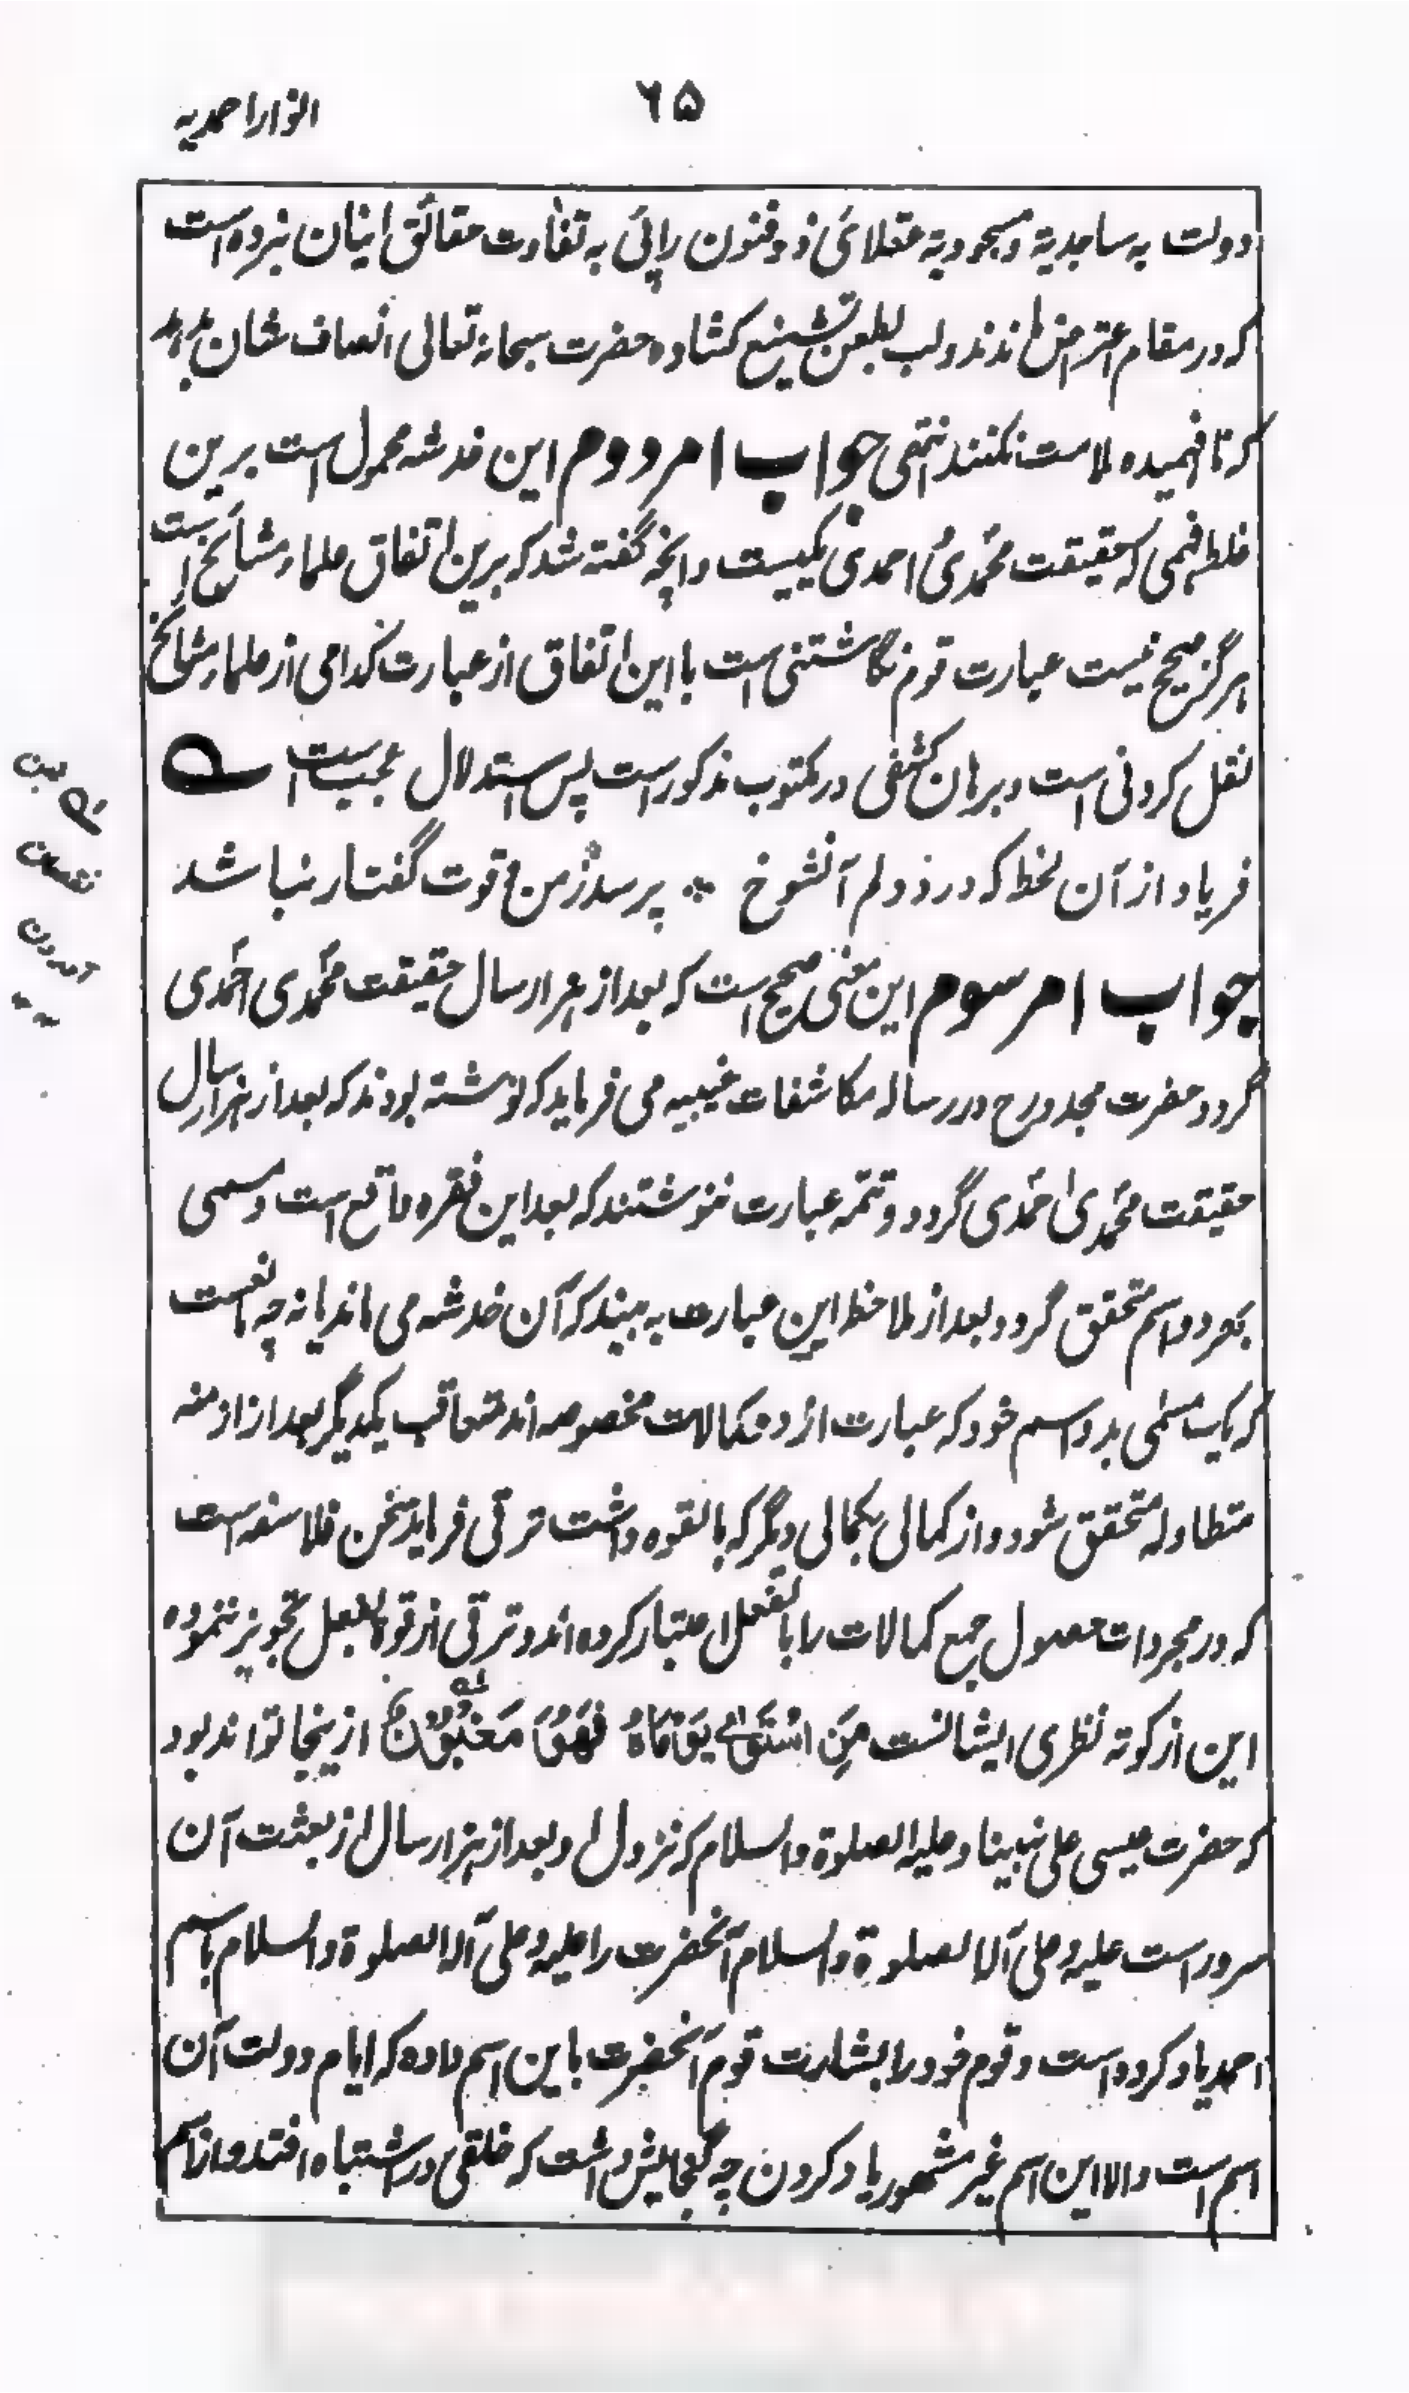 ۶۵
انوار احمدیه
دولت به ساجدیة و مسجودیة عقلائی ذو فنون را پی به تفاوت حقائق اینان نبرده است
که در مقام اعتراض اند و لب بطعن تشنیع کشاده حضرت سبحانه تعالی انصاف شان بدهد
که نا فهمیده ملامت نکنند انتهی جواب امر دوم این خدشه محمول است برین
غلط فهمی که حقیقت محمدی احمدی یکیست و انچه گفته شد که برین اتفاق علماء مشائخ است
هرگز صحیح نیست عبارت قوم نگاشتنی است با این اتفاق از عبارت کدامی از علماء مشائخ
نقل کردنی است و برهان کشفی در مکتوب مذکور است پس استدلال عجیب است ے
فریاد از آن لحظه که درد دلم آنشوخ ؞ پرسد ز من و قوت گفتار نباشد
جواب امر سوم این معنی صحیح است که بعد از هزار سال حقیقت محمدی احمدی
گردد حضرت مجدد رح در رساله مکاشفات غیبیه می فرماید که نوشته بودند که بعد از هزار سال
حقیقت محمدی احمدی گردد و تتمه عبارت ننوشتند که بعد این فقره واقع است و مسمی
بهر دو اسم متحقق گردد بعد از ملاحظه این عبارت به بیند که آن خدشه می ماند یا نه چه
که یک مسمی بدو اسم خود که عبارت از دو کمالات مخصوصه اند متعاقب یکدیگر بعد از ازمنه
متطاوله متحقق شود و از کمالی بکمالی دیگر که بالقوه داشت ترقی فرماید سخن فلاسفه است
که در مجردات حصول جمع کمالات را بالفعل اعتبار کرده اند و ترقی از قوة بفعل تجویز ننموده
این از کوته نظری ایشانست مَنِ اسْتَوٰے یَوْمَاهُ فَهُوَ مَغْبُوْنٌ ازینجا تواند بود
که حضرت عیسی علی نبینا و علیه الصلوة والسلام که نزول او بعد از هزار سال از بعثت آن
سرور است علیه و علی آله الصلوة والسلام آنحضرت را علیه و علی آله الصلوة والسلام باسم
احمد یاد کرده است و قوم خود را بشارت قوم آنحضرت باین اسم داده که ایام دولت آن
اسم است والا این اسم غیر مشهور یاد کردن چه گنجایش داشت که خلقی در اشتباه افتد و از اسم
نقصان
آمدن